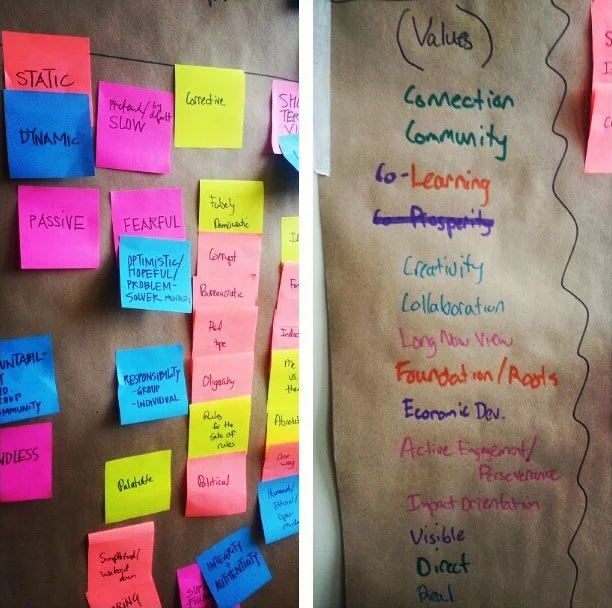 STATIC
DYNAMIC
PASSIVE
by default
SLOW
Corrective
FEARFUL
OPTIMISTIC/
HOPEFUL/
PROBLEM-
SOLVER
Falsely
Democratic
Corrupt
Bureaucratic
Red
tape
Oligarchy
Rules
for the
sake of
rules
Political
UNTABIL-
OMMUNITY
NDLESS
RESPONSIBILITY
-GROUP
-INDIVIDUAL
Palatable
Simplified/
Watered
down
RING
INTEGRITY
+
AUTHENTICITY
SHO
TER
VI
Me
vs.
the
Absolu
One
way
(Values)
Connection
Community
Co-Learning
Co-Prosperity
Creativity
Collaboration
Long Now View
Foundation/Roots
Economic Dev.
Active Engagement/
Perseverance
Impact Orientation
Visible
Direct
Real